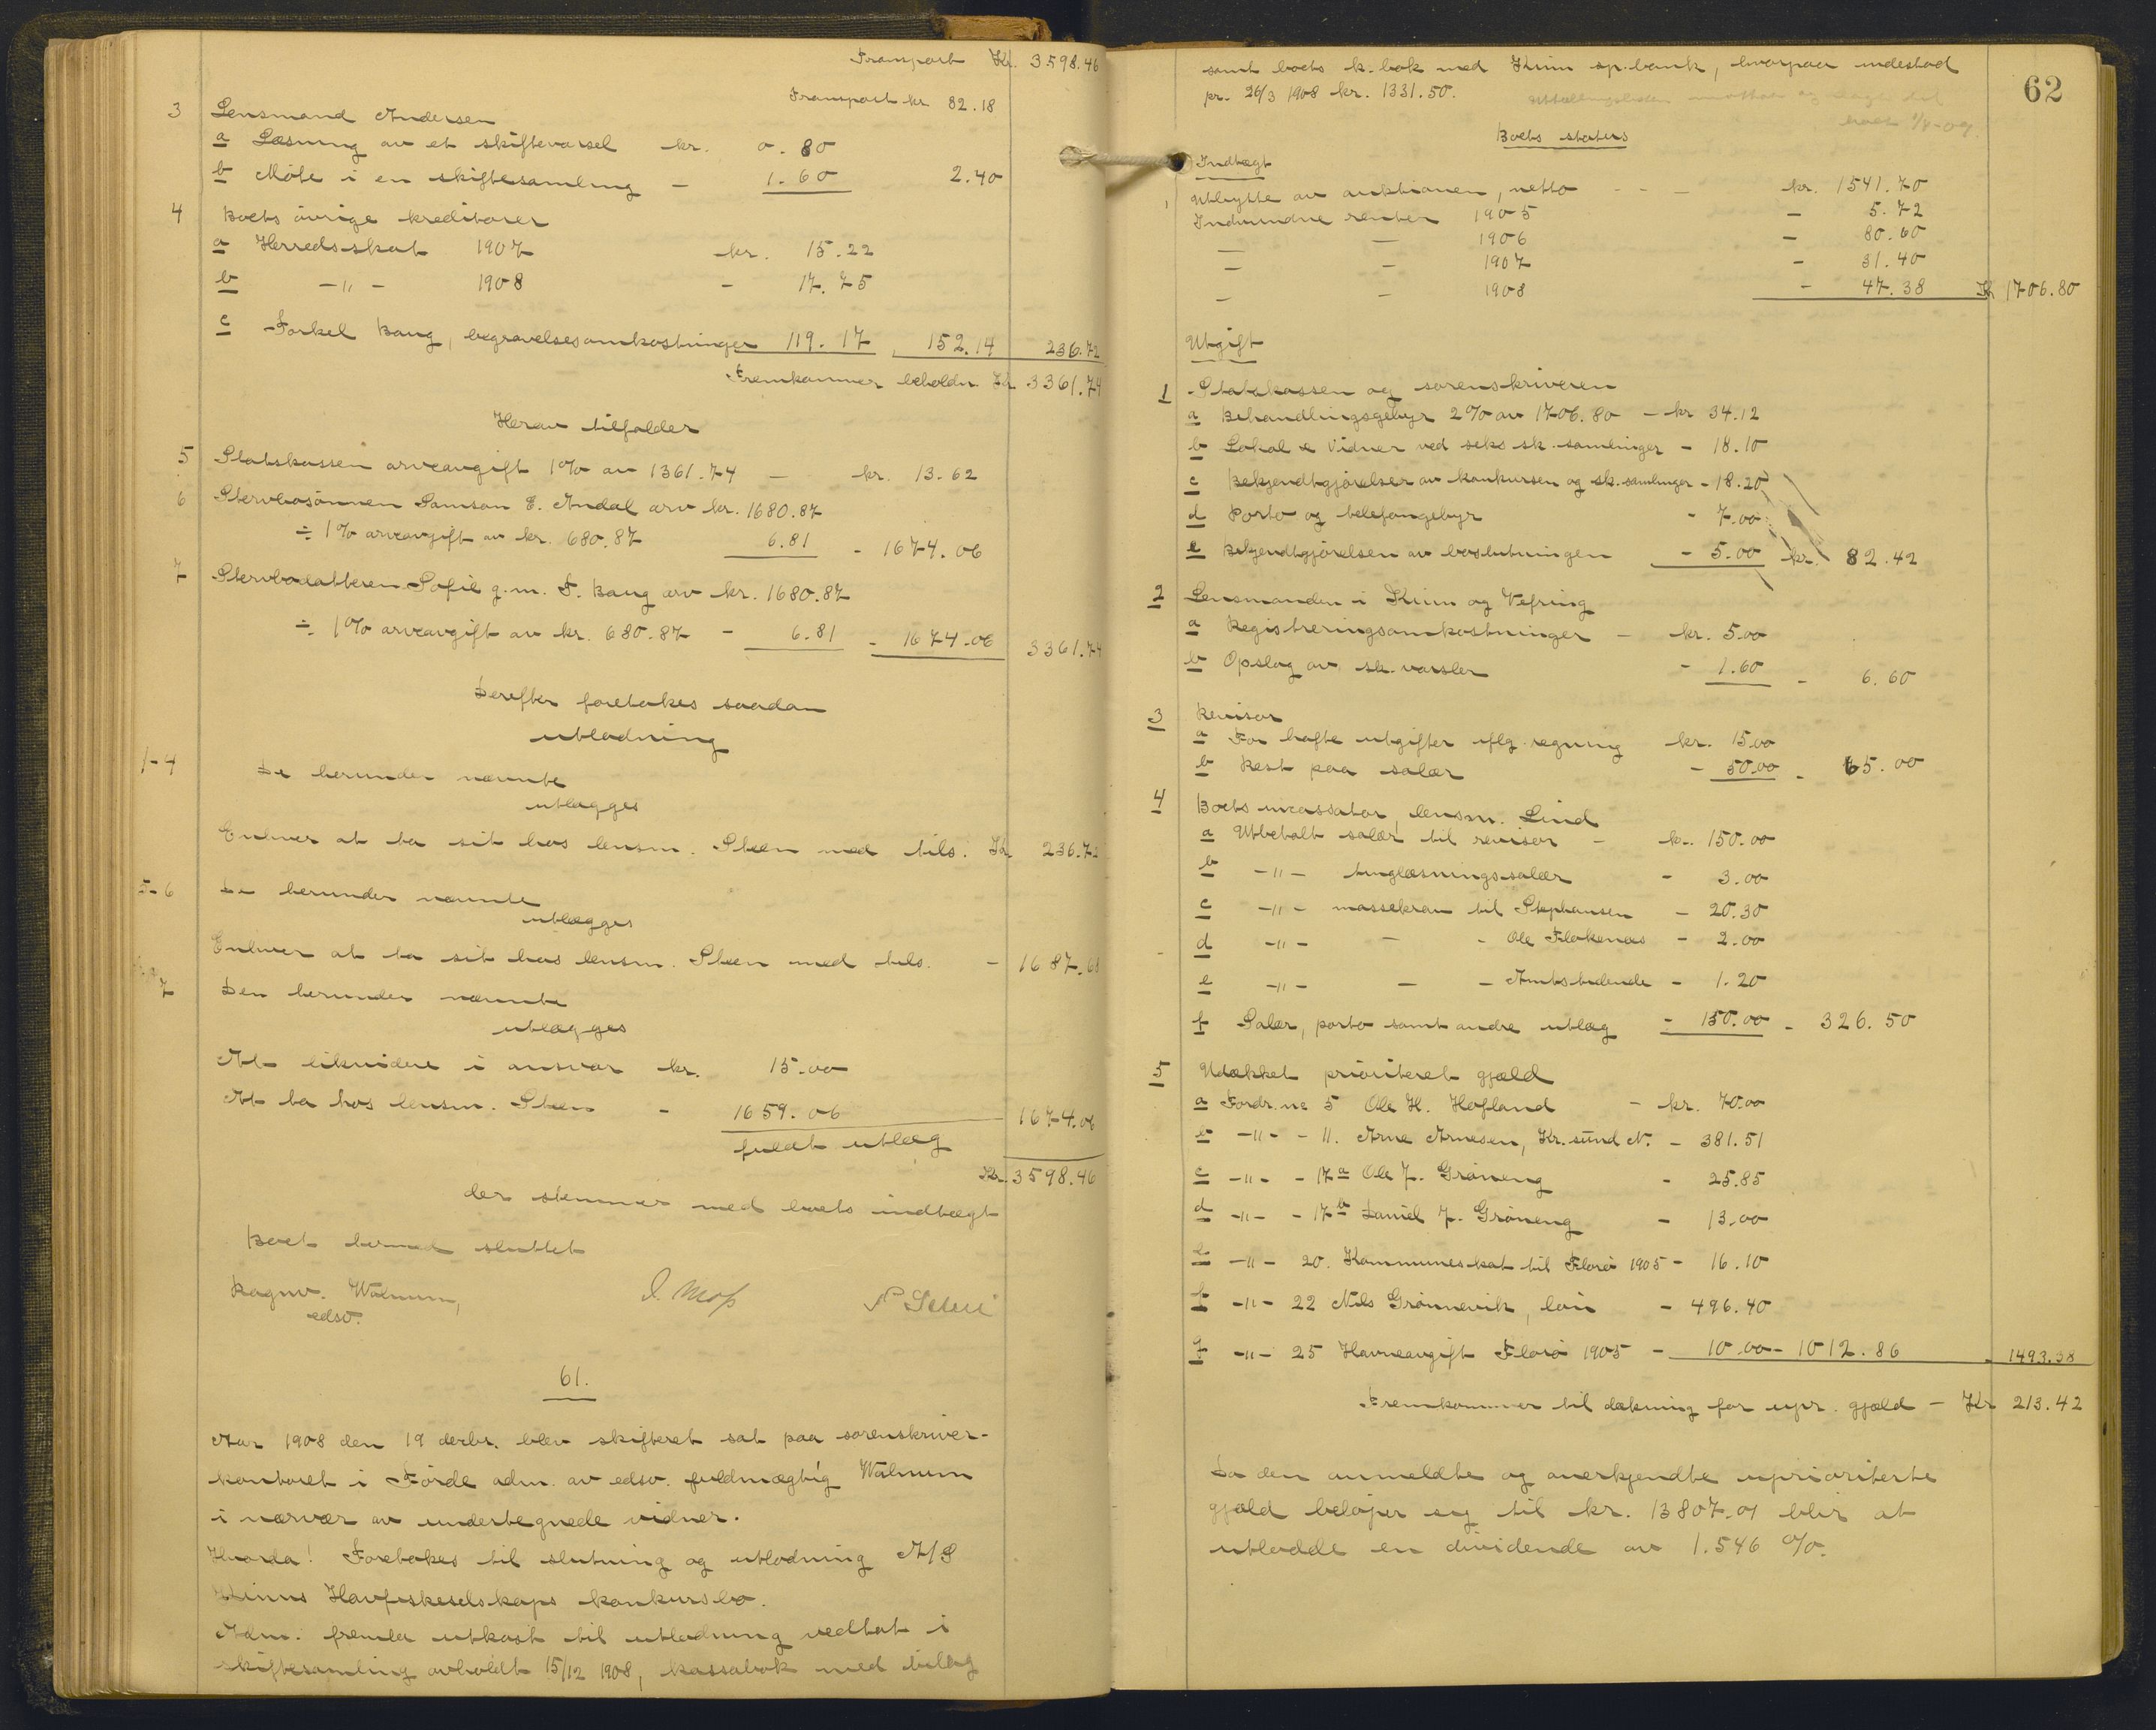 Transport Kr. 3598.46
Transport kr 82.18
3 Lensmand Andersen
a Læsning av et skiftevarsel kr. 0.80
b Møte i en skiftesamling - 1.60 2.40
4 Boets øvrige kreditorer
a Herredsskat 1907 kr. 15.22
b -"- 1908 - 17.75
c Torkel Bang, begravelsesomkostninger 119.17 152.14 236.72
Fremkommer beholdn. Kr 3361.74
Herav tilfalder
5 Statskassen arveavgift 1% av 1361.74 - kr. 13.62
6 Stervbosønnen Samson E. Indal arv kr. 1680.87
÷ 1% arveavgift av kr. 680.87 6.81 - 1674.06
7 Stervbodatteren Sofie g.m. T. Bang arv kr. 1680.87
÷ 1% arveavgift av kr. 680.87 - 6.81 - 1674.06 3361.74
Derefter foretokes saadan
utlodning
1-4 De herunder nævnte
utlægges
Enhver at ta sit hos lensm. Steen med tils. Kr. 236.72
5-6 De herunder nævnte
utlægges
Enhver at ta sit hos lensm. Steen med tils. - 1687.68
7 Den herunder nævnte
utlægges
At likvidere i ansvar kr. 15.00
At ta hos lensm. Steen - 1659.06 1674.06
fuldt utlæg
Kr. 3598.46
der stemmer med boets indtægt
Boet hermed sluttet
Ragnv. Walnum,
edsv.
J. Moss
61.
Aar 1908 den 19 decbr. blev skifteret sat paa sorenskriver-
kontoret i Førde adm. av edsv. fuldmægtig Walnum
i nærvær av undertegnede vidner.
Hvorda! Foretokes til slutning og utlodning A/S
Kinns Havfiskeselskaps konkursbo.
Adm. fremla utkast til utlodning vedtat i
skiftesamling avholdt 15/12 1908, kassabok med bilag
62
samt boets k. bok med Kinn sp.bank, hvorpaa indestod
pr. 26/3 1908 kr. 1331.50.
Boets status
Indtægt
Utbytte av auktionen, netto - - - kr. 1541.70
Indvundne renter 1905 - 5.72
- - 1906 - 80.60
- - 1907 - 31.40
- - 1908 - 47.38 Kr 1706.80
Utgift
1 Statskassen og sorenskriveren
a Behandlingsgebyr 2% av 1706.80 - kr 34.12
b Lokal & Vidner ved seks sk.samlinger - 18.10
c Bekjendtgjørelser av konkursen og sk.samlinger - 18.20
d Porto og telefongebyr - 7.00
e Bekjendtgjørelsen av boslutningen - 5.00 kr. 82.42
2 Lensmanden i Kinn og Vefring
a Registreringsomkostninger - kr. 5.00
b Opslag av sk.varsler - 1.60 - 6.60
3 Revisor
a For hafte utgifter iflg. regning kr. 15.00
b Rest paa salær - 50.00 - 65.00
4 Boets incassator, lensm. Lind
a Utbetalt salær til revisor - kr. 150.00
b -"- tinglæsningssalær - 3.00
c -"- massekrav til Stephansen - 20.30
d -"- - - Ole Flokenæs - 2.00
e -"- - - Amtstidende - 1.20
f Salær, porto samt andre utlæg - 150.00 - 326.50
5 Udækket prioriteret gjæld
a Fordr. nr 5 Ole H. Hofland - kr. 70.00
b -"- - 11. Arne Arnesen, Kr.sund N. - 381.51
c -"- - 17a Ole J. Grøneng - 25.85
d -"- - 17b Daniel J. Grøneng - 13.00
e -"- 20. Kommuneskat til Florø 1905 - 16.10
f -"- 22 Nils Grønnevik, løn - 496.40
g -"- 25 Havneavgift Florø 1905 - 10.00 - 1012.86 - 1493.38
Fremkommer til dækning for upr. gjæld - Kr 213.42
Da den anmeldte og anerkjendte uprioriterte
gjæld beløper sig til kr. 13807.01 blir at
utlodde en dividende av 1.546 %.